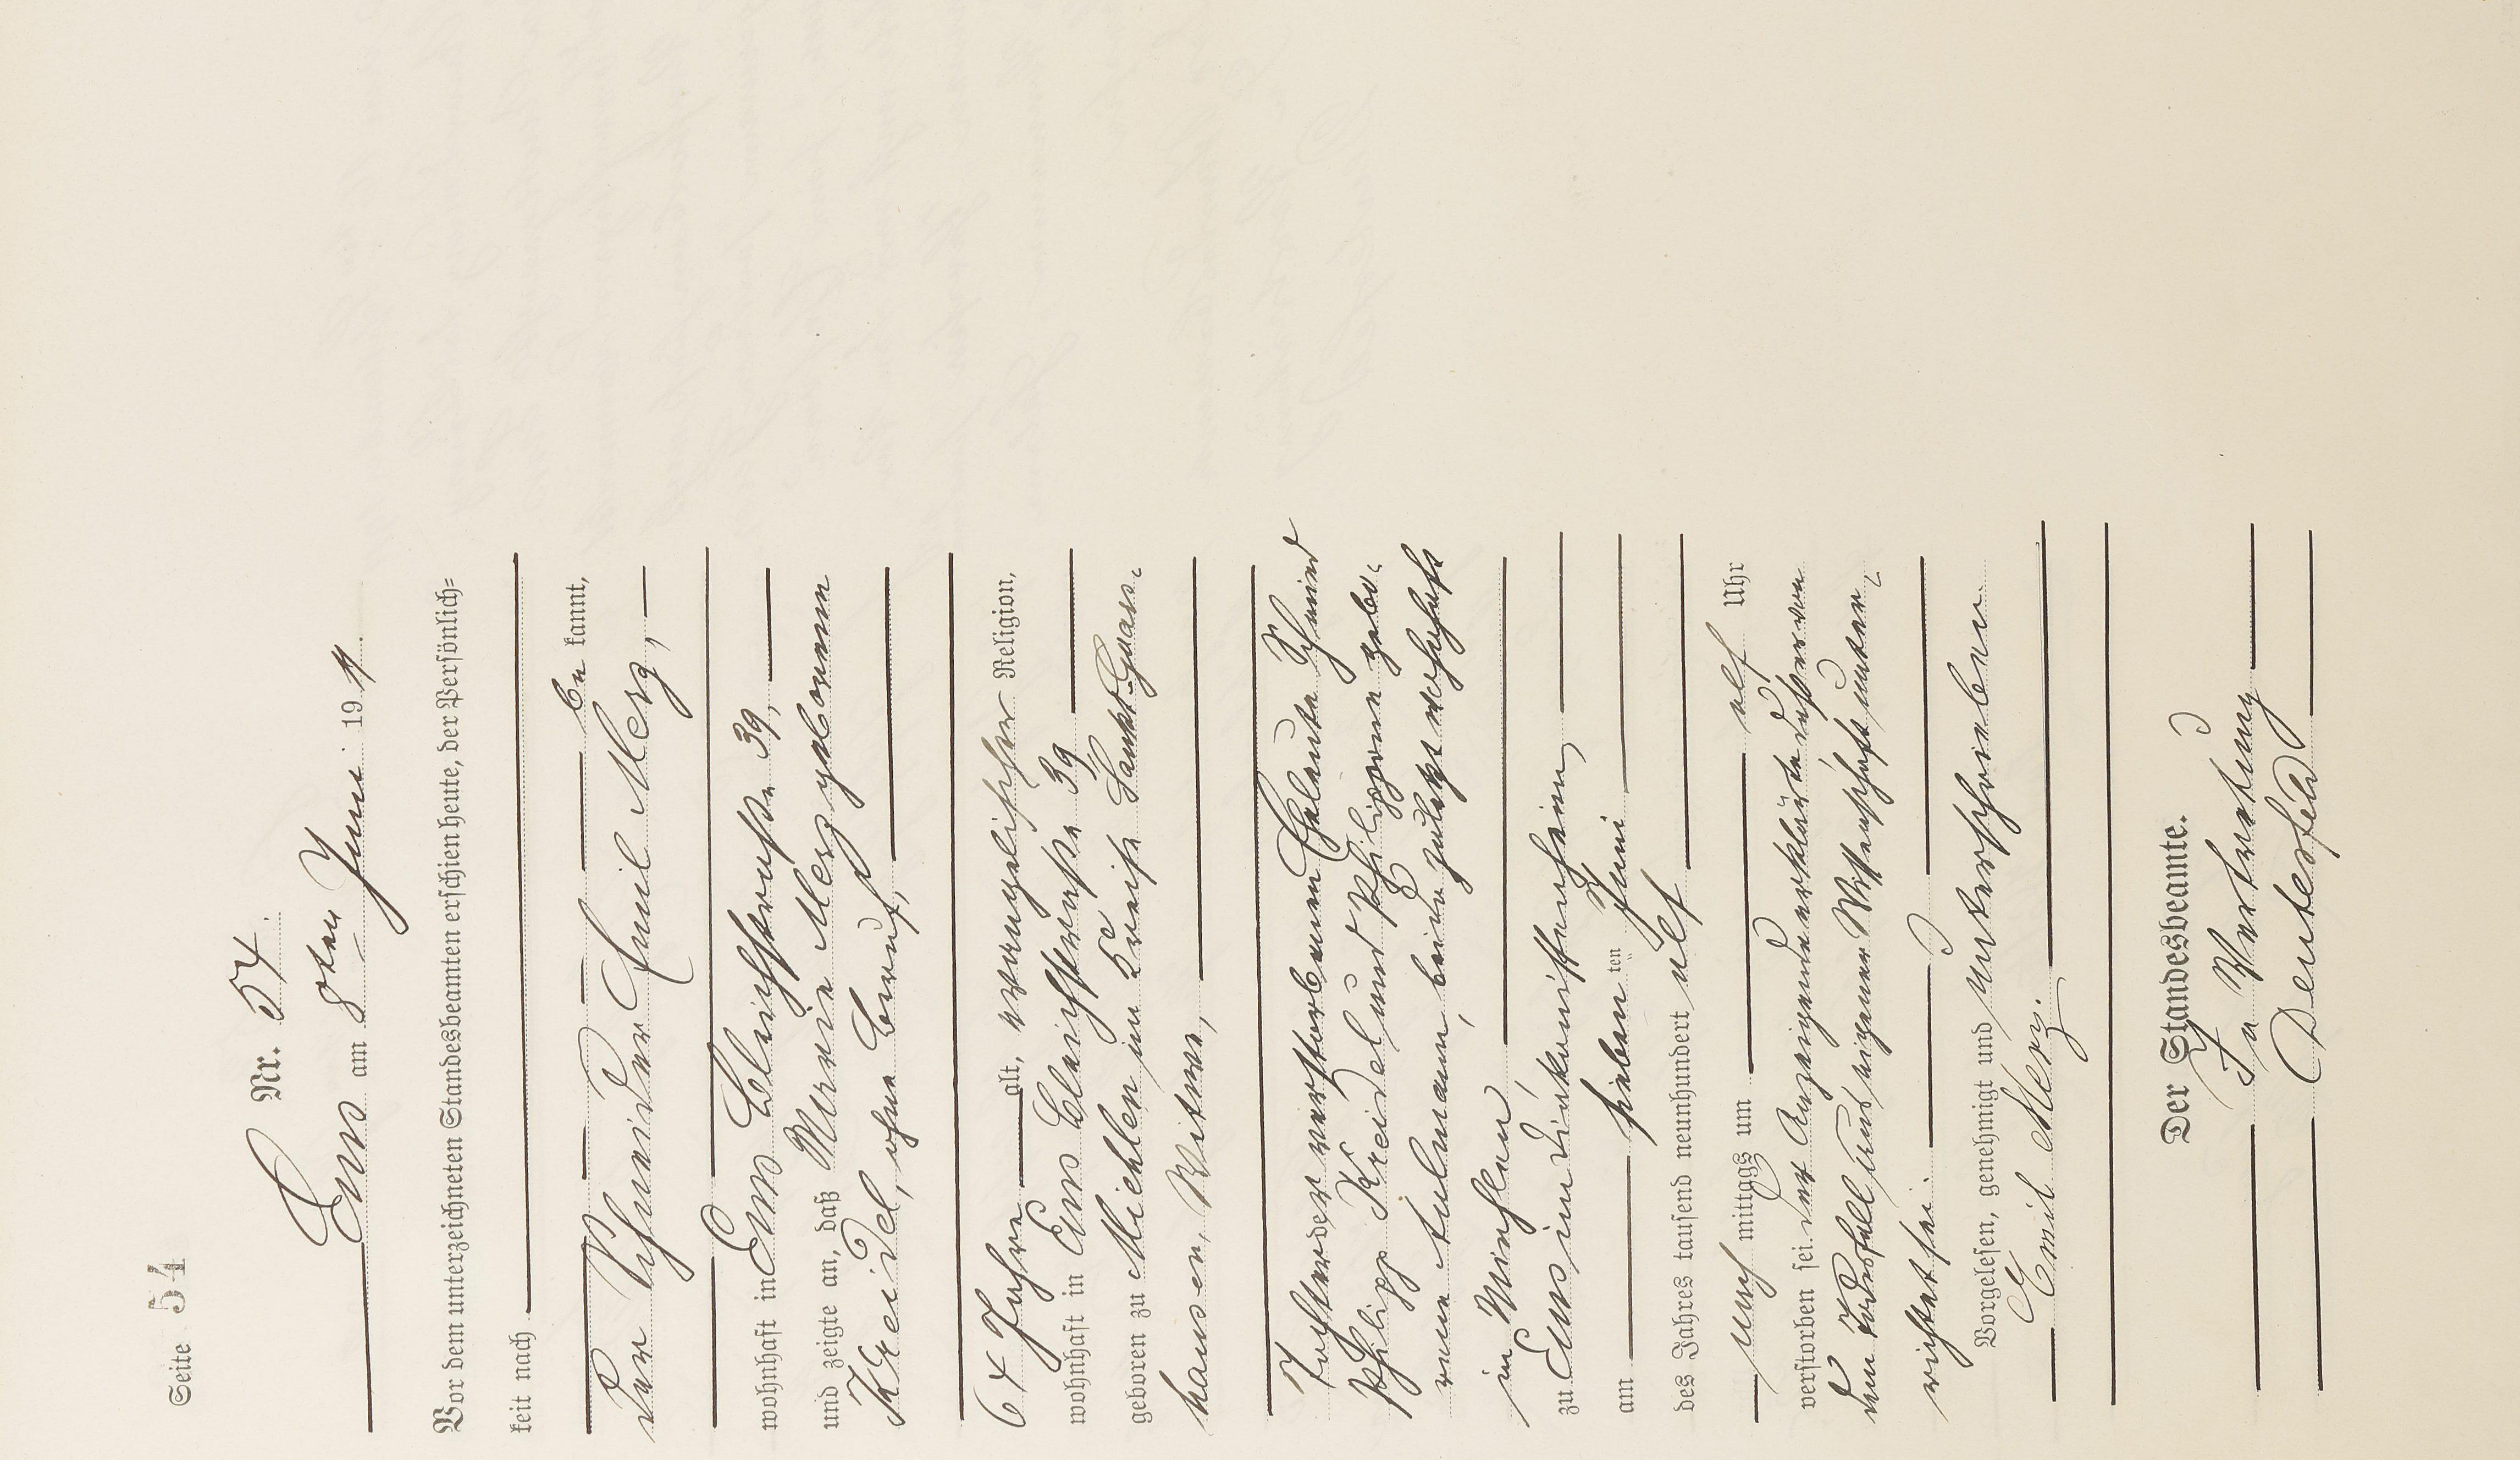 Seite 54
Nr. 54.
Ems am 8ten Juni 1911.
Vor dem unterzeichneten Standesbeamten erschien heute, der Persönlich-
keit nach
be kannt,
der Schneider Emil Merz,
wohnhaft in Ems Bleichstraße 39,
und zeigte an, daß Marie Merz geborene
Kreidel, ohne Beruf,
64 Jahre alt, evangelischer Religion,
wohnhaft in Ems Bleichstraße 39
geboren zu Miehlen im Kreise Sankt-Goars-
hausen, Witwe,
Tochter der verstorbenen Eheleute Schmied
Philipp Kreidel und Philippine gebo-
rene Aulmann, beide zuletzt wohnhaft
in Miehlen,
zu Ems im Diakonissenheim,
am sieben ten Juni
des Jahres tausend neunhundert elf
nach mittags um elf Uhr
verstorben sei. Der Anzeigende erklärte daß er von
dem Todesfall aus eigener Wissenschaft unter-
richtet sei.
Vorgelesen, genehmigt und unterschrieben
Emil Merz.
Der Standesbeamte.
In Vertretung